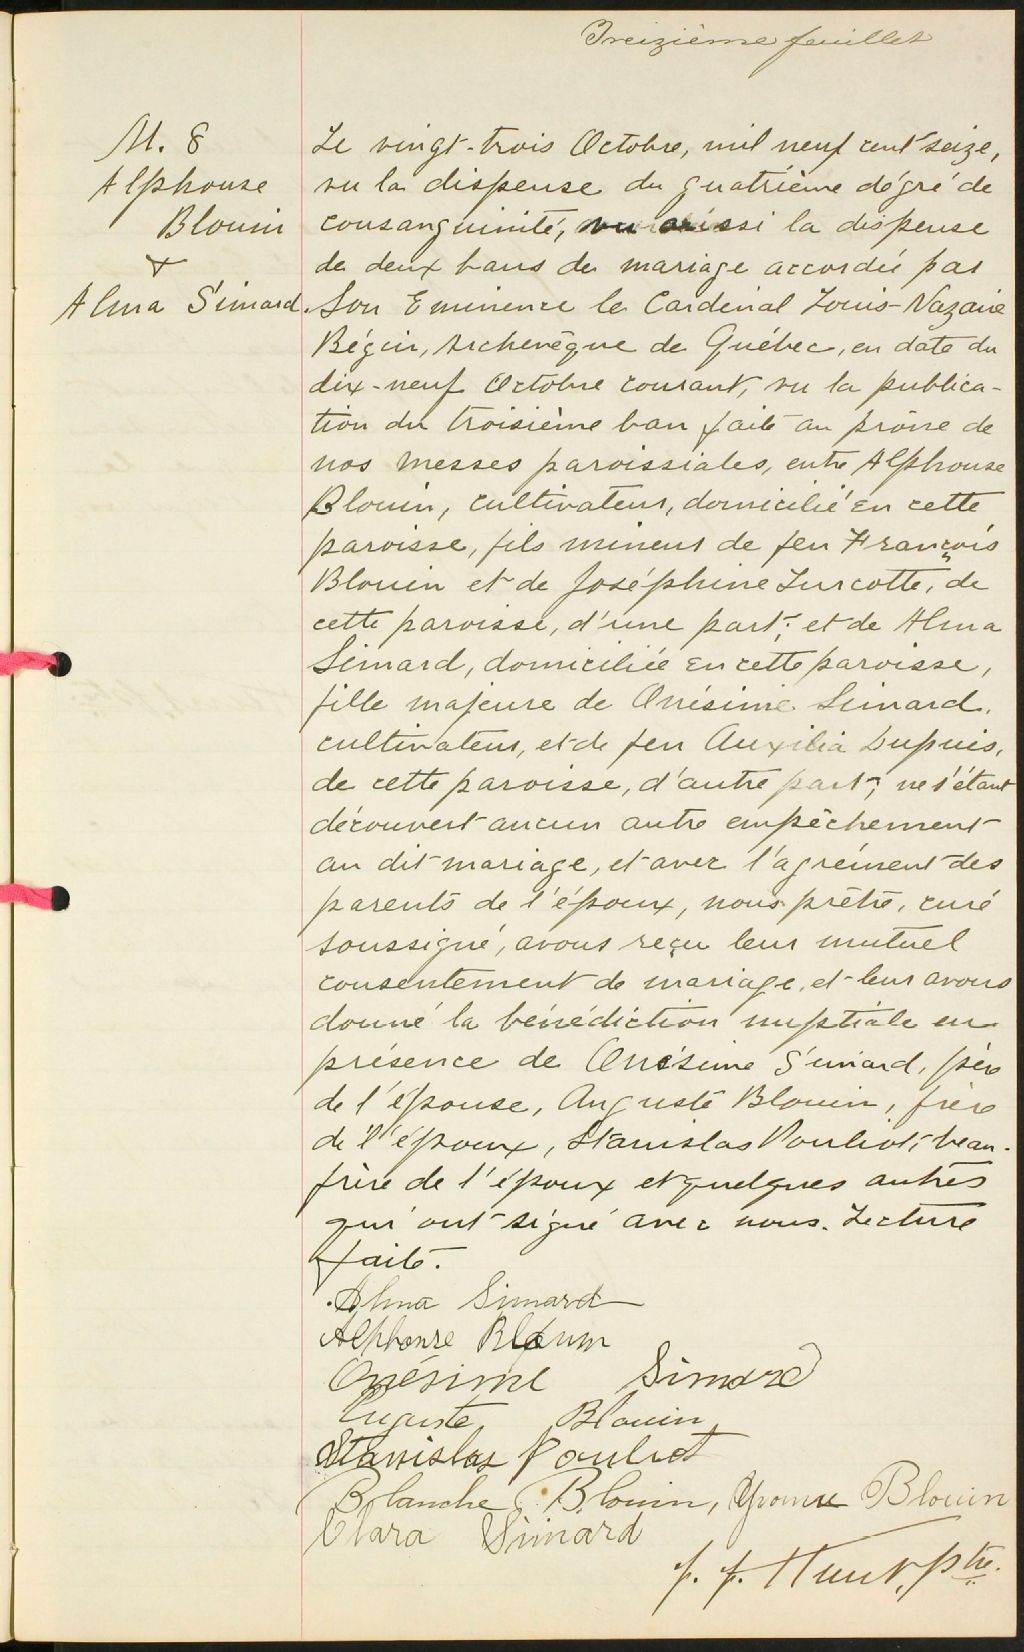 Treizième feuillet
M. 8
Alphonse
Blouin
&
Alma Simard.
Le vingt-trois Octobre, mil neuf cent seize,
vu la dispense du quatrième dégré de
consanguinité, vu aussi la dispense
de deux bans de mariage accordée par
Son Eminence le Cardinal Louis-Nazaire
Bégin, Archevêque de Québec, en date du
dix-neuf Octobre courant, vu la publica-
tion du troisième ban faite au prône de
nos messes paroissiales, entre Alphonse
Blouin, cultivateur, domicilié en cette
paroisse, fils mineur de feu François
Blouin et de Joséphine Turcotte, de
cette paroisse, d'une part; et de Alma
Simard, domiciliée en cette paroisse,
fille majeure de Onésime Simard,
cultivateur, et de feu Auxilia Dupuis,
de cette paroisse, d'autre part; ne s'étant
découvert aucun autre empêchement
au dit mariage, et avec l'agrément des
parents de l'époux, nous prêtre, curé
soussigné, avons reçu leur mutuel
consentement de mariage, et leur avons
donné la bénédiction nuptiale en
présence de Onésime Simard, père
de l'épouse, Auguste Blouin, frère
de l'époux, Stanislas Pouliot, beau-
frère de l'époux et quelques autres
qui ont signé avec nous. Lecture
faite.
Alma Simard
Alphonse Blouin
Onésime Simard
Auguste Blouin
Stanislas Pouliot
Blanche Blouin, Yvonne Blouin
Clara Simard
J. J. Hunt, Ptre.